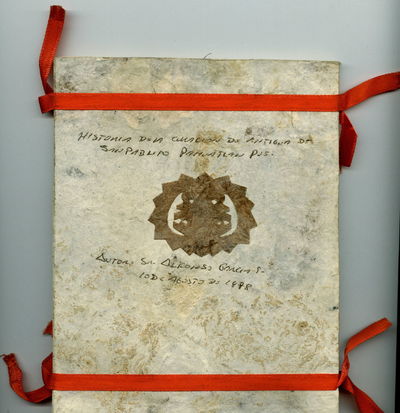 HISTORIA DE LA CURACION DE ANTIGUA DE
SAN PABLITO PAHUATLAN PUE.
AUTOR. SR. ALFONSO GARCIA T.
10 DE AGOSTO DE 1998